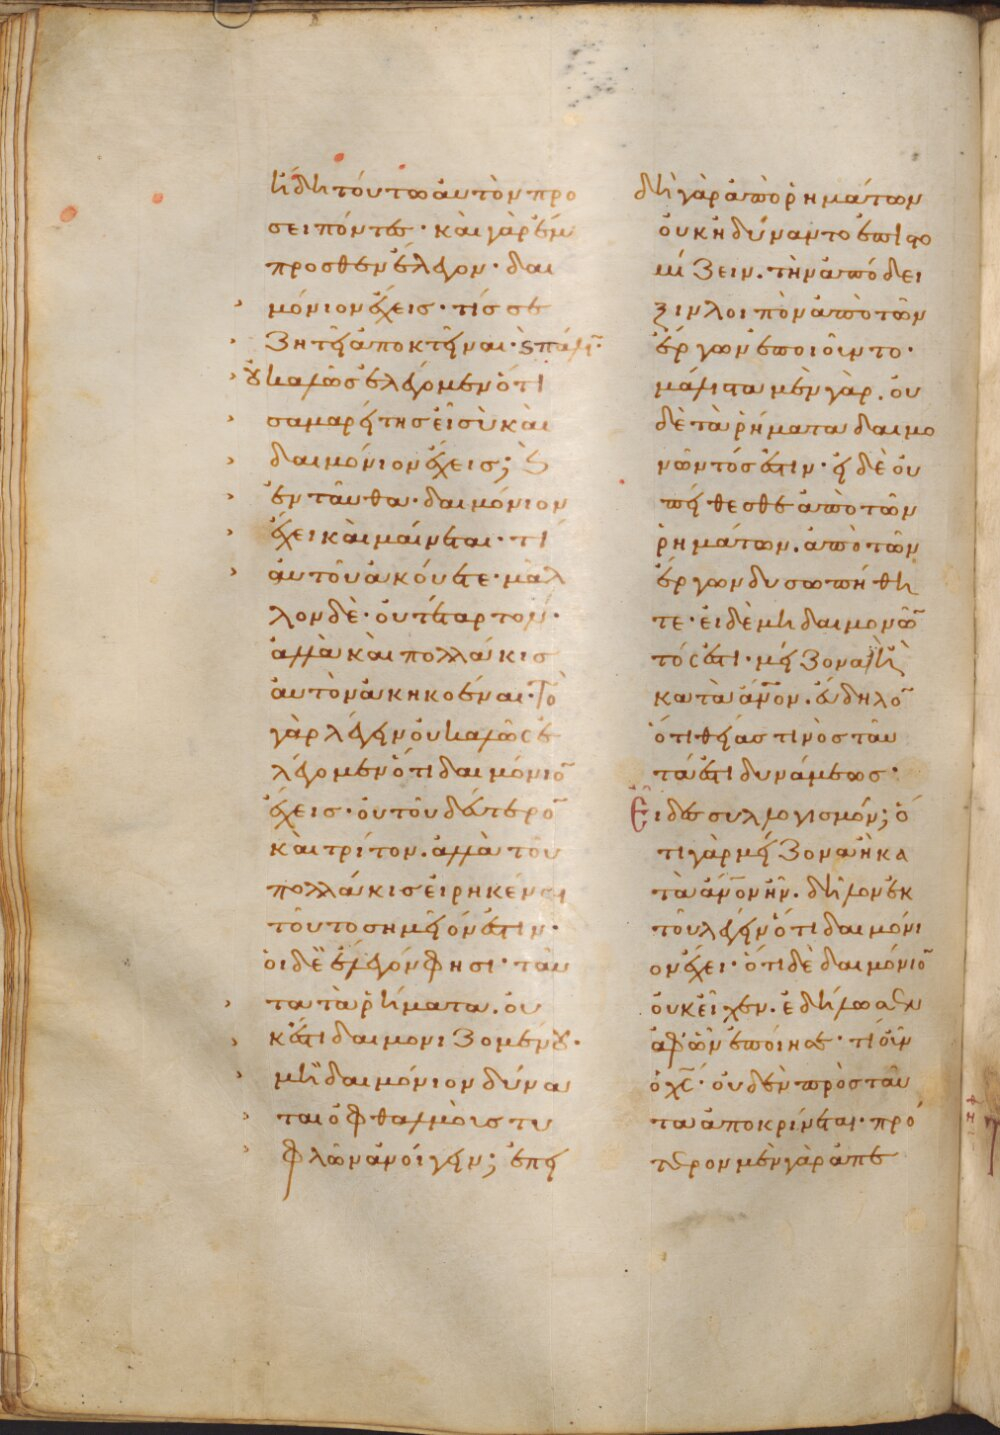 ἤδη τούτω αὐτὸν προ
σειπόντες· καὶ γὰρ ἔμ
προσθεν ἔλεγον· δαι
μόνιον ἔχεις· τίς σε
ζητεῖ ἀποκτεῖναι· ϗ πάλι̅·
οὐ καλῶς ἐλέγομεν ὅτι
σαμαρείτης εἶ σὺ καὶ
δαιμόνιον ἔχεις; ϗ
ἐνταῦθα· δαιμόνιον
ἔχει καὶ μαίνεται· τί
αὐτοῦ ἀκούετε· μᾶλ
λον δὲ· οὐ τέταρτον·
ἀλλὰ καὶ πολλάκις
αὐτὸν ἀκηκοέναι· Τὸ
γὰρ λέγειν οὐ καλῶς ἐ
λέγομεν ὅτι δαιμόνιο̅
ἔχεις· οὐ τοῦ δεύτερο̅
καὶ τρίτον. ἀλλὰ τοῦ
πολλάκις εἰρηκέναι
τοῦτο σημεῖόν ἐστιν·
οἱ δὲ ἔλεγόν φησι· ταῦ
τα τὰ ῥήματα. οὐ
κ ἔστι δαιμονιζομένου·
μὴ δαιμόνιον δύνα
ται ὀφθαλμοὺς τυ
φλῶν ἀνοίγειν; ἐπει
δὴ γὰρ ἀπὸ ῥημάτων
οὐκ ἠδύναντο ἐπιστο
μίζειν. τὴν ἀπόδει
ξιν λοιπὸν ἀπὸ τῶν
ἔργων ἐποιοῦντο·
μάλιστα μὲν γὰρ. οὐ
δὲ τὰ ῥήματα δαιμο
νῶντός ἐστιν· εἰ δὲ οὐ
πείθεσθε ἀπὸ τῶν
ῥημάτων. ἀπὸ τῶν
ἔργων δυσωπήθη
τε· εἰ δὲ μὴ δαιμονῶ̅
τός ἐστι· μείζονα ἢ
κατὰ ἄν̅ον. εὔδηλο̅
ὅτι θείας τινὸς ταῦ
τά ἐστι δυνάμεως·
Εἶδες συλλογισμόν; ὅ
τι γὰρ μείζονα ἢ κα
τὰ ἄν̅ον ἦν. δῆλον ἐκ
τοῦ λέγειν ὅτι δαιμόνι
ον ἔχει· ὅτι δὲ δαιμόνιο̅
οὐκ εἶχεν. ἐδήλωσεν
ἀφ' ὧν ἐποίησε· τί οὖν
ὁ χ̅ς· οὐδὲν πρὸς ταῦ
τα ἀποκρίνεται· πρό
τερον μὲν γὰρ ἀπε